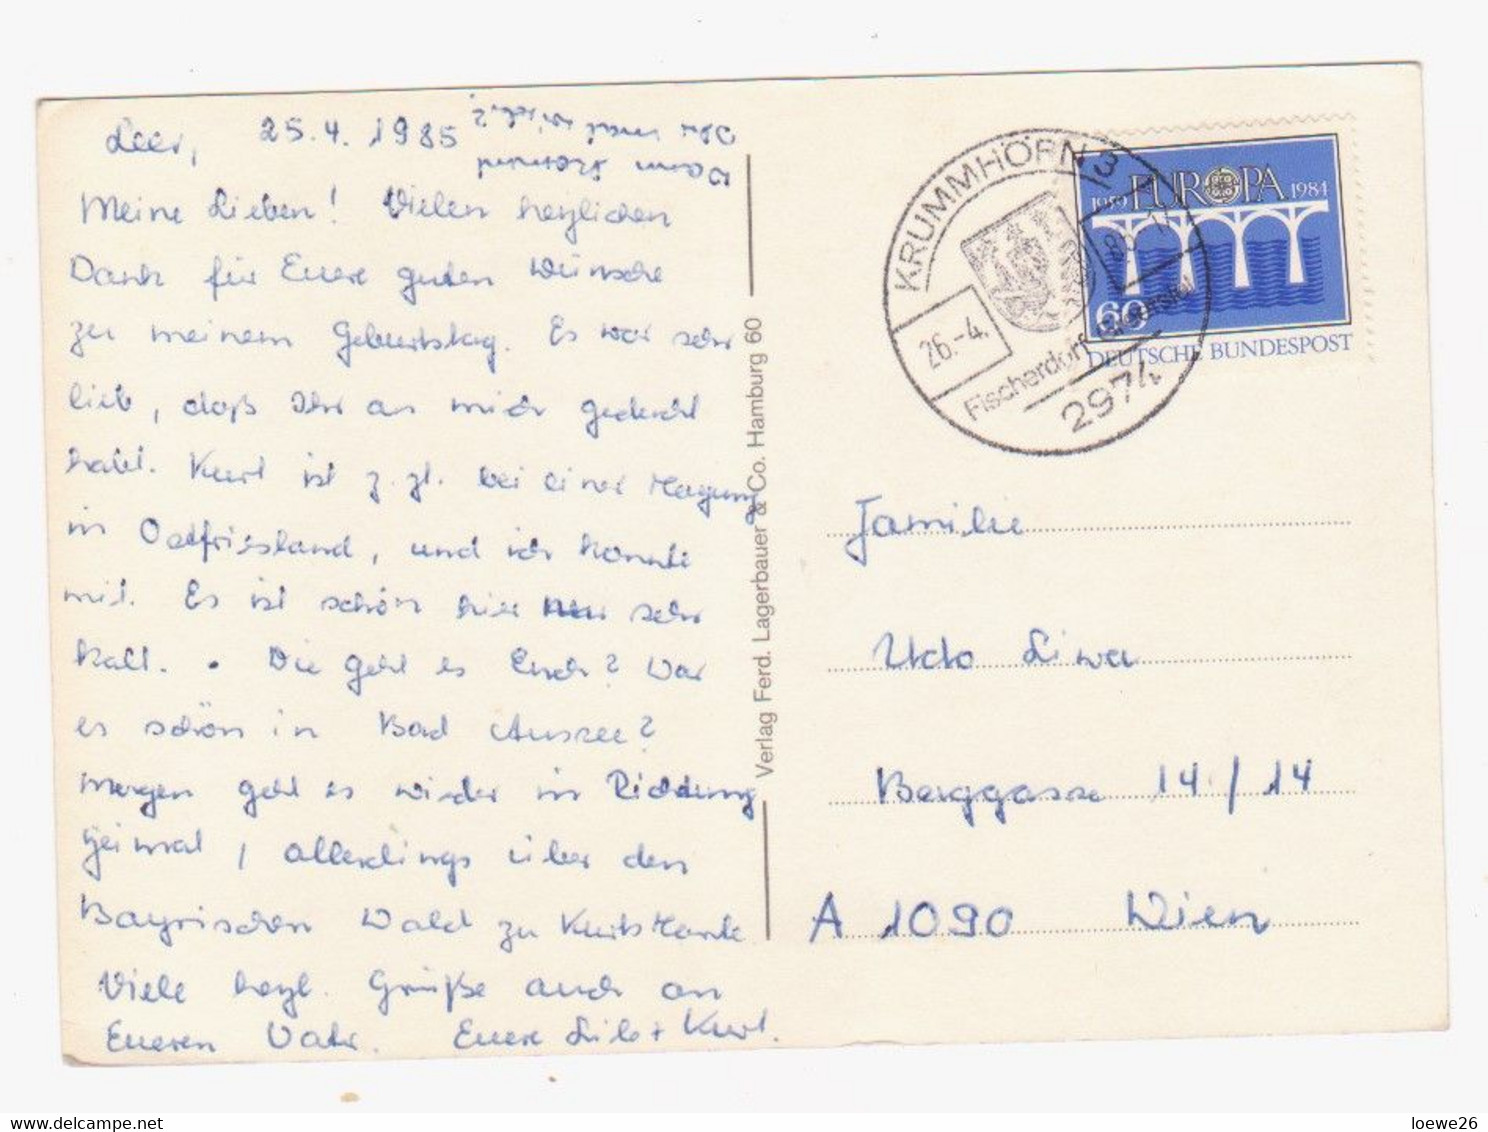 Leer, 25.4.1985
Meine Lieben! Vielen herzlichen
Dank für Euere guten Wünsche
zu meinem Geburtstag. Es war sehr
lieb, daß Ihr an mich gedacht
habt. Kurt ist z.Zt. bei einer Tagung
in Ostfriesland, und ich konnte
mit. Es ist schön hier nur sehr
kalt. Wie geht es Euch? War
es schön in Bad Aussee?
Morgen geht es wieder in Richtung
Heimat, allerdings über den
Bayrischen Wald zu Kurts Tante
Viele herzl. Grüße auch an
Eueren Vater. Euere Lilo + Kurt.
Wann kommt
Ihr nach
Verlag Ferd. Lagerbauer & Co. Hamburg 60
KRUMMHÖRN 3
26.-4. 85
Fischerdorf Greetsiel
2974
EUROPA
1959 1984
60
DEUTSCHE BUNDESPOST
Familie
Udo Liwa
Berggasse 14/14
A 1090 Wien
loewe26